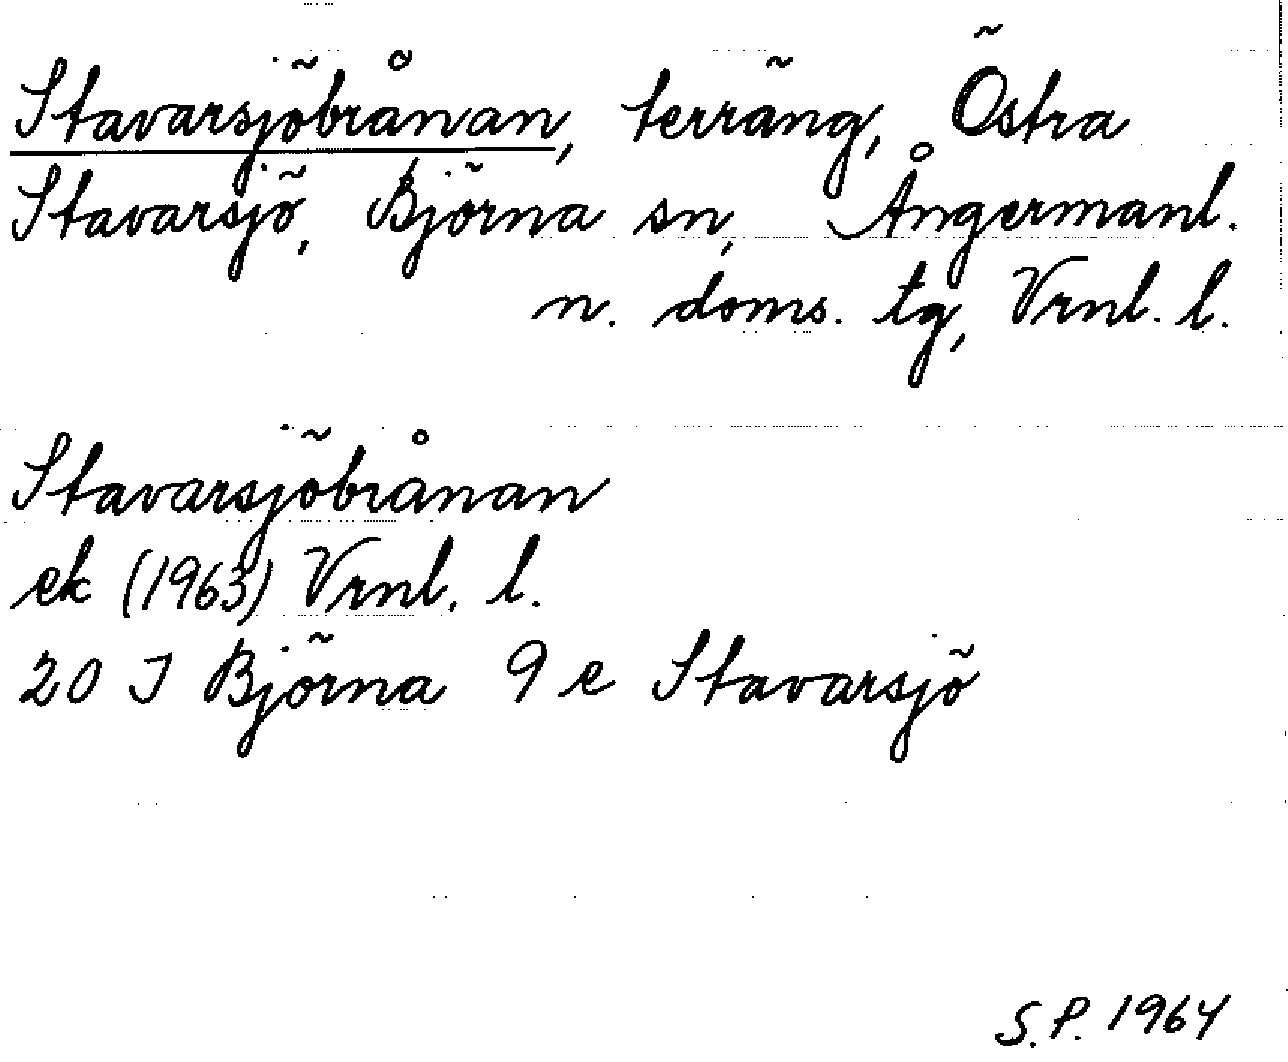 Stavarsjöbrånan, terräng, Östra
Stavarsjö, Björna sn, Ångermanl.
n. doms. tg, Vrnl. l.
Stavarsjöbrånan
ek (1963) Vrnl. l.
20 J Björna 9 e Stavarsjö
S.P. 1964